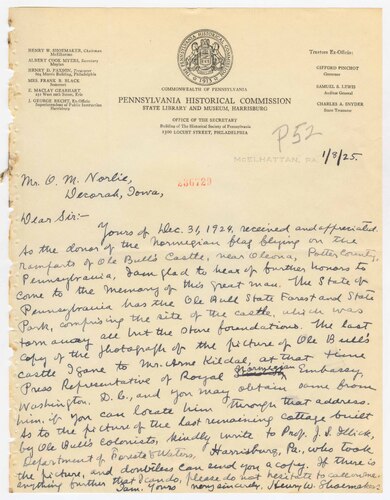 HENRY W. SHOEMAKER, Chairman
McElhattan
ALBERT COOK MYERS, Secretary
Moylan
HENRY D. PAXSON, Treasurer
MRS. FRANK B. BLACK
Somerset
E. MACLAY GEARHART
J. GEORGE BECHT, Ex-Officio
Superintendent of Public Instruction
Harrisburg
PENNSYLVANIA HISTORICAL COMMISSION
Trustees Ex-Officio:
GIFFORD PINCHOT
Governor
SAMUEL S. LEWIS
Auditor General
CHARLES A. SNYDER
State Treasurer
COMMONWEALTH OF PENNSYLVANIA
PENNSYLVANIA HISTORICAL COMMISSION
STATE LIBRARY AND MUSEUM, HARRISBURG
OFFICE OF THE SECRETARY
Building of The Historical Society of Pennsylvania
1300 LOCUST STREET, PHILADELPHIA
P52
MCELHATTAN, PA. 1/8/25.
Mr. O. M. Norlie,
Decorah, Iowa,
Dear Sir:-
Yours of Dec. 31, 1924, received and appreciated.
As the donor of the Norwegian flag flying on the
ramparts of Ole Bull's Castle, near Oleona, Potter County,
Pennsylvania, I am glad to hear of further honors to
come to the memory of this great man. The State of
Pennsylvania has the Ole Bull State Forest and State
Park, comprising the site of the castle, which was
torn away all but the stone foundations. The last
copy of the photograph of the picture of Ole Bull's
castle I gave to Mr. Arne Kildal, at that time
Press Representative of Royal Norwegian Embassy,
Washington, D.C., and you may obtain same from
him, if you can locate him through that address.
As to the picture of the last remaining cottage built
by Ole Bull's colonists, kindly write to Prof. J. S. Illick,
Department of Forests & Waters, Harrisburg, Pa., who took
the picture, and doubtless can send you a copy. If there is
anything further that I can do, please do not hesitate to
I am, Yours very sincerely, Henry W. Shoemaker